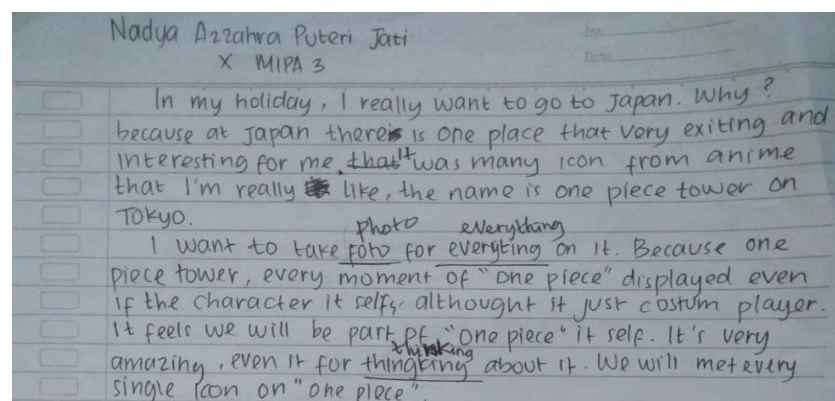 Nadya Azzahra Puteri Jati
X MIPA 3
No.
Date:
In my holiday, I really want to go to Japan. Why?
because at Japan there is one place that very exiting and
interesting for me. that it was many icon from anime
that I'm really like, the name is one piece tower on
TOKYO.
photo everythang
I want to take foto for everyting on it. Because one
piece tower, every moment of "one piece" displayed even
if the character it self, althought it just costum player.
It feels we will be part of "one piece" it self. It's very
thinking
amazing, even it for thingking about it. We will met every
single icon on "one piece".